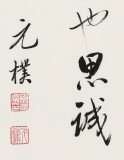 也思誠
元樸